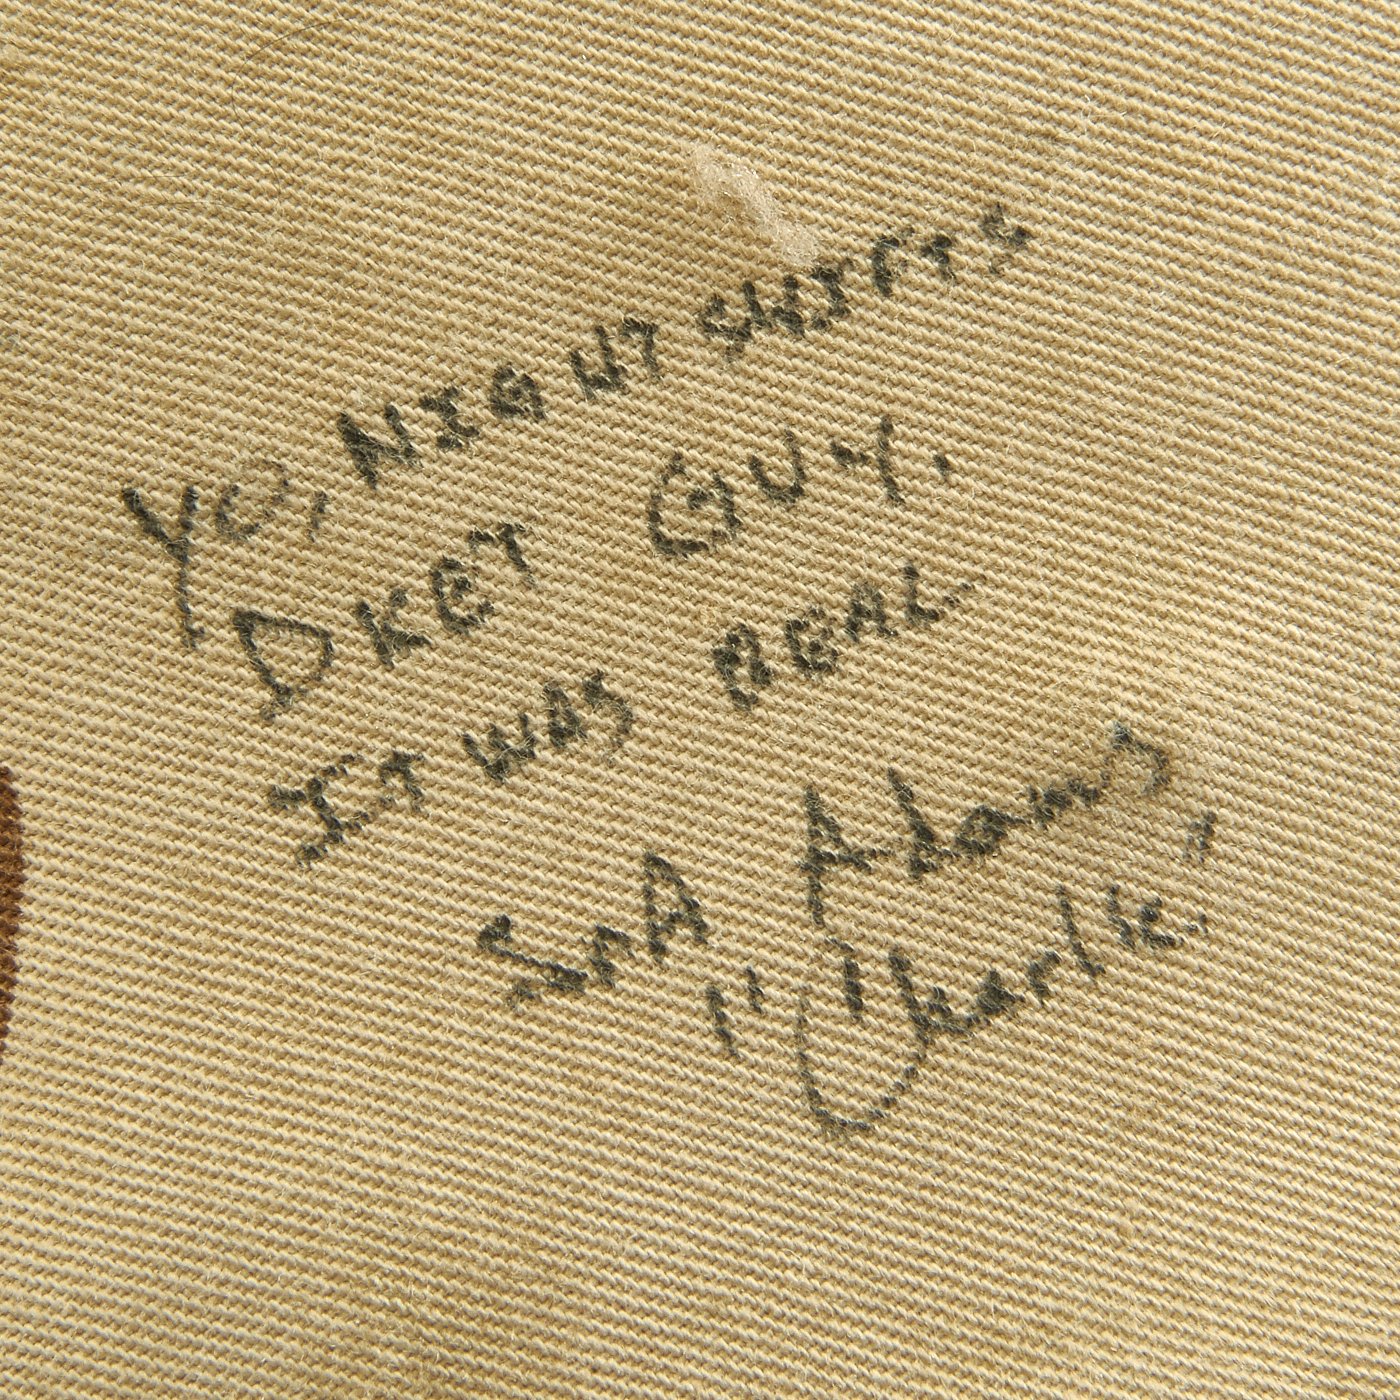 Yo, NIGHT SHIFTS
DKET GUY.
IT WAS REAL.
SrA Adams
"Charlie."